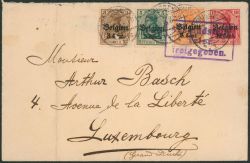 Belgien
Belgien
Belgien
Belgien
freigegeben.
Monsieur
Arthur Basch
4 Avenue de la Liberté
Luxembourg
(Grand Duché)